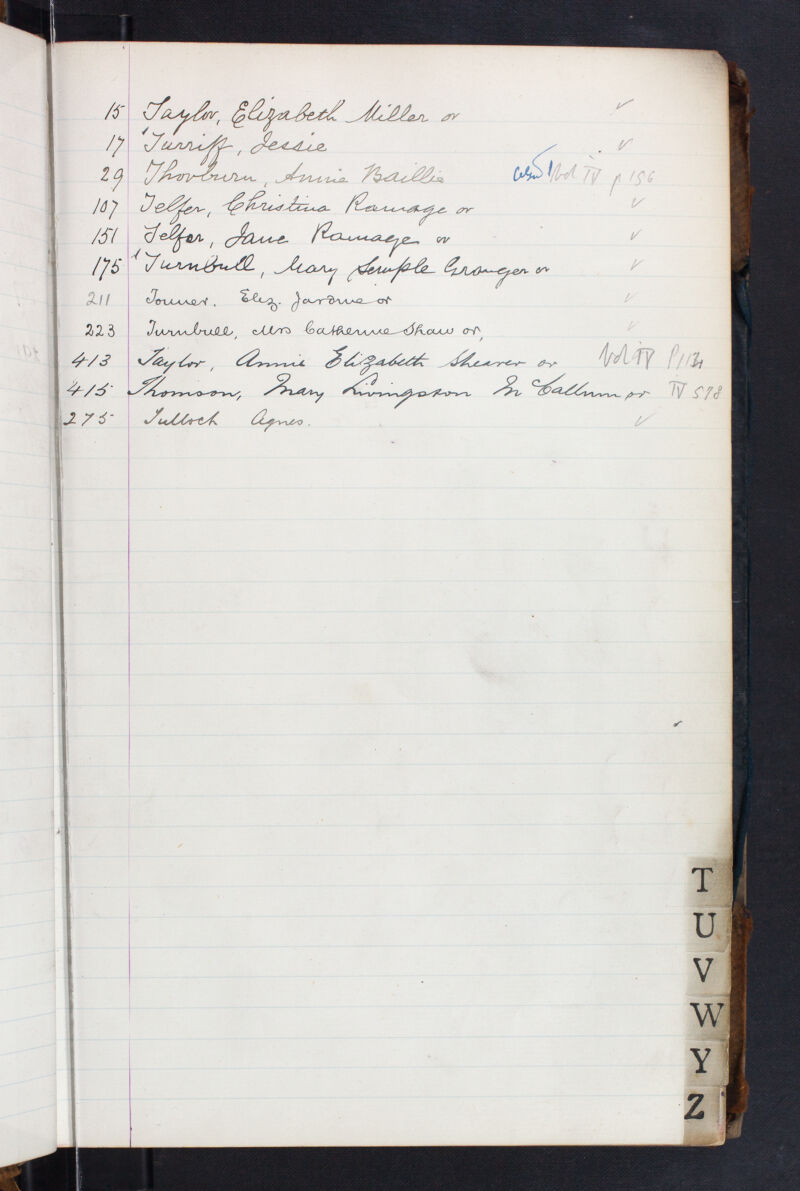 15 Taylor, Elizabeth Miller or ✓
17 Turriff, Jessie ✓
29 Thorburn, Annie Baillie also Vol IV p 156
107 Telfer, Christina Ramage or ✓
151 Telfer, Jane Ramage or ✓
175 Turnbull, Mary Semple Granger or ✓
211 Tonner. Eliz. Jardine or ✓
223 Turnbull, Mrs Catherine Shaw or, ✓
413 Taylor, Annie Elizabeth Shearer or Vol IV
415 Thomson, Mary Livingston McCallum or IV 578
275 Tulloch Agnes. ✓
T
U
V
W
Y
Z